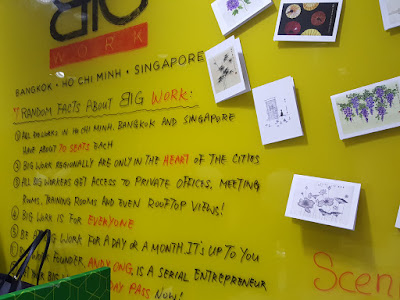 BIG
WORK
BANGKOK • HO CHI MINH • SINGAPORE
7 RANDOM FACTS ABOUT BIG WORK:
① ALL BIG WORKS IN HO CHI MINH, BANGKOK AND SINGAPORE
HAVE ABOUT 70 SEATS EACH
② BIG WORK REGIONALLY ARE ONLY IN THE HEART OF THE CITIES
③ ALL BIG WORKERS GET ACCESS TO PRIVATE OFFICES, MEETING
ROOMS, TRAINING ROOMS AND EVEN ROOFTOP VIEWS!
④ BIG WORK IS FOR EVERYONE
BIG WORK FOR A DAY OR A MONTH. IT'S UP TO YOU
FOUNDER, ANDY ONG, IS A SERIAL ENTREPRENEUR
BIG DAY PASS NOW!
Scen